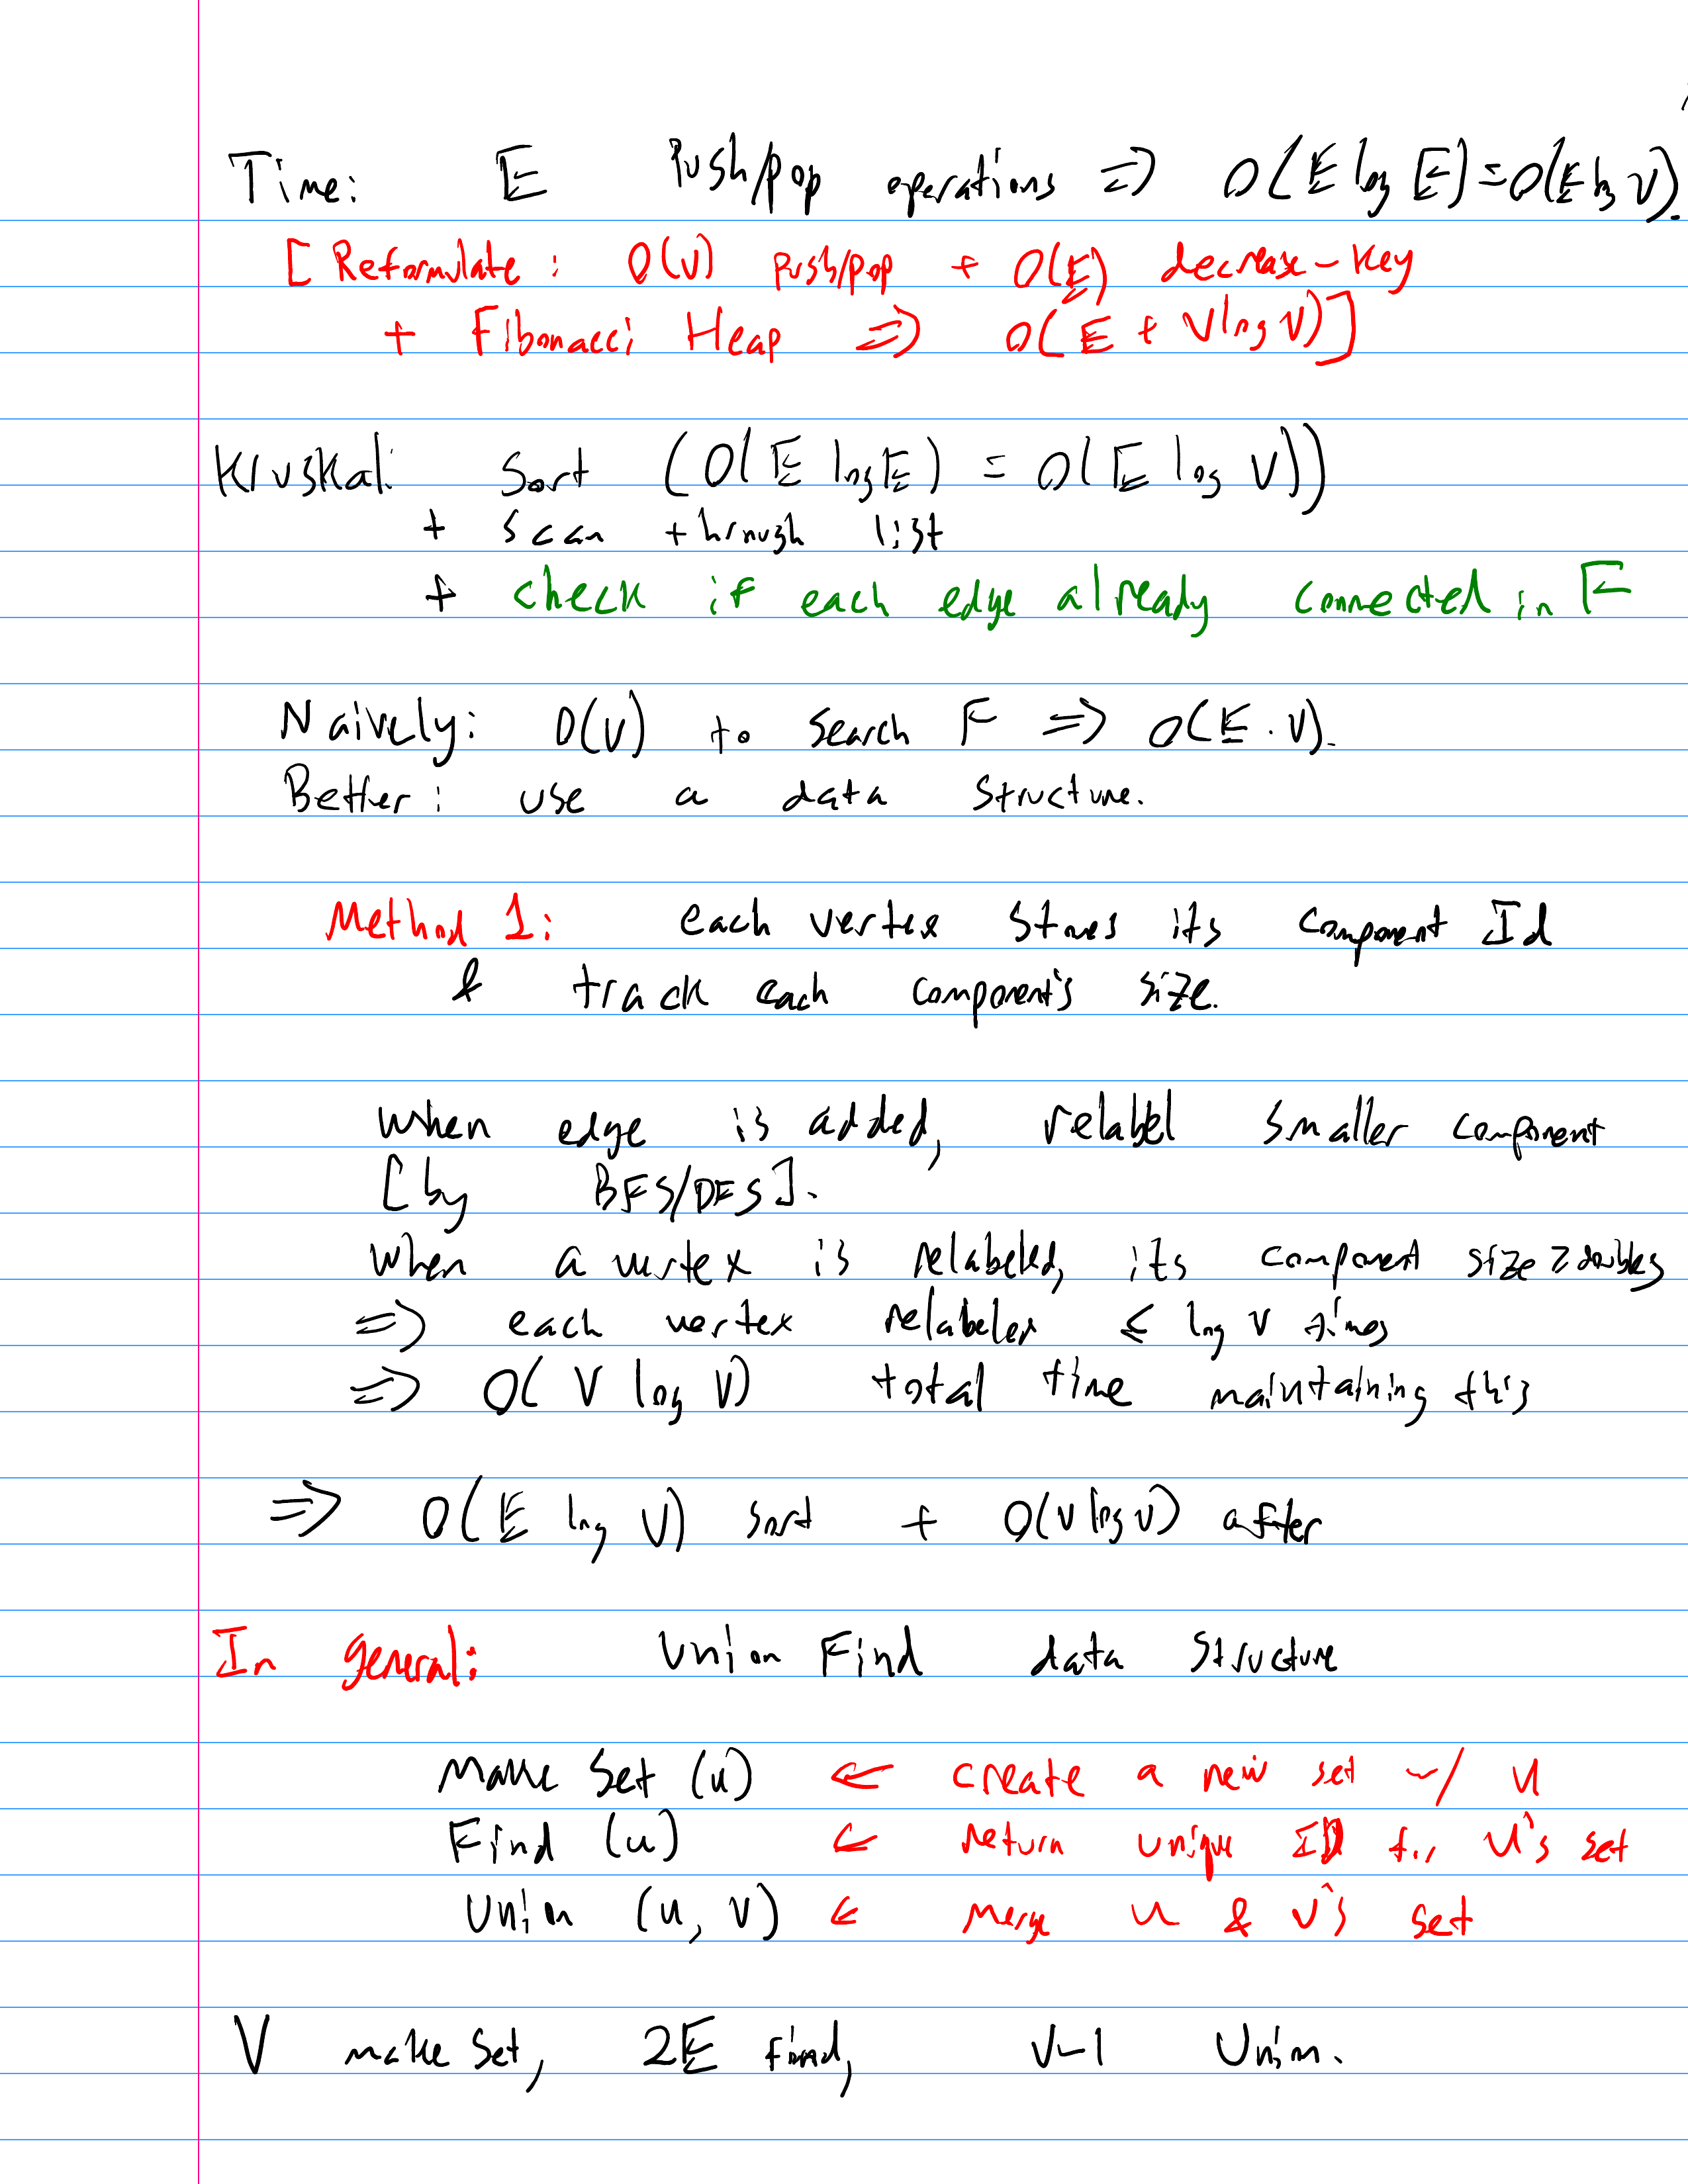 Time: E Push/pop operations => O(E log E) = O(E log V).
[Reformulate: O(V) push/pop + O(E) decrease-key
+ Fibonacci Heap => O(E + V log V)]
Kruskal: Sort (O(E log E) = O(E log V))
+ scan through list
+ check if each edge already connected in F
Naively: O(V) to search F => O(E · V).
Better: use a data structure.
Method 1: each vertex stores its component Id
& track each component's size.
When edge is added, relabel smaller component
[by BFS/DFS].
When a vertex is relabeled, its component size ≥ doubles
=> each vertex relabeled ≤ log V times
=> O(V log V) total time maintaining this
=> O(E log V) sort + O(V log V) after
In general: Union Find data structure
Make Set (u) ← create a new set w/ u
Find (u) ← return unique ID for u's set
Union (u, v) ← merge u & v's set
V make Set, 2E find, V-1 Union.